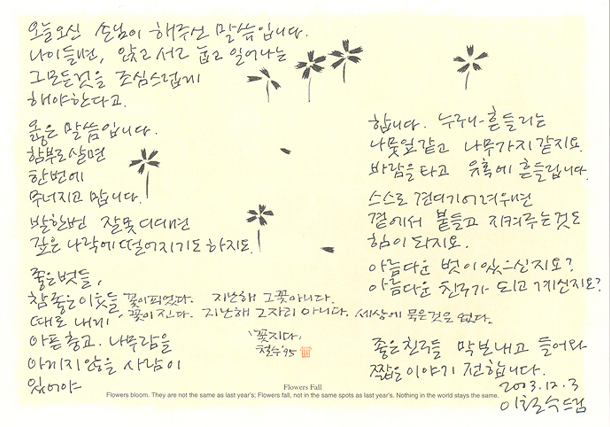 오늘오신 손님이 해주신 말씀입니다.
나이들면, 앉고 서고 눕고 일어나는
그모든것을 조심스럽게
해야한다고.
옳은 말씀입니다.
함부로 살면
한번에
무너지고 맙니다.
발한번 잘못 디디면
깊은 나락에 떨어지기도 하지요.
좋은벗들,
참 좋은이웃들
때로 내게
아픈 충고. 나무람을
아끼지않을 사람이
있어야
합니다. 누구나 흔들리는
나뭇잎같고 나무가지 같지요.
바람을 타고 유혹에 흔들립니다.
스스로 견디기어려우면
곁에서 붙들고 지켜주는것도
힘이 되지요.
아름다운 벗이 있으신지요?
아름다운 친구가 되고 계신지요?
좋은친구들 막보내고 들어와
짧은이야기 전합니다.
2003.12.3
이철수드림
꽃이피었다. 지난해 그꽃아니다.
꽃이 진다. 지난해 그자리 아니다. 세상에 묵은것은 없다.
'꽃지다'
철수 '95
Flowers Fall
Flowers bloom. They are not the same as last year's; Flowers fall, not in the same spots as last year's. Nothing in the world stays the same.